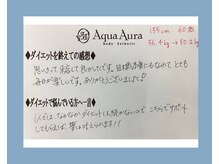 Aqua Aura
Body Esthetic
155cm 60歳
56.4kg→50.2kg
◆ダイエットを終えての感想◆
思いきって来店して良かったです。目標体重にもなれて とても
毎日が楽しいです。ありがとうございました。
◆ダイエットで悩んでいる方へ一言◆
1人では、なかなかダイエットは続かないので こちらでサポート
してもらえば、夢は叶えられます!!